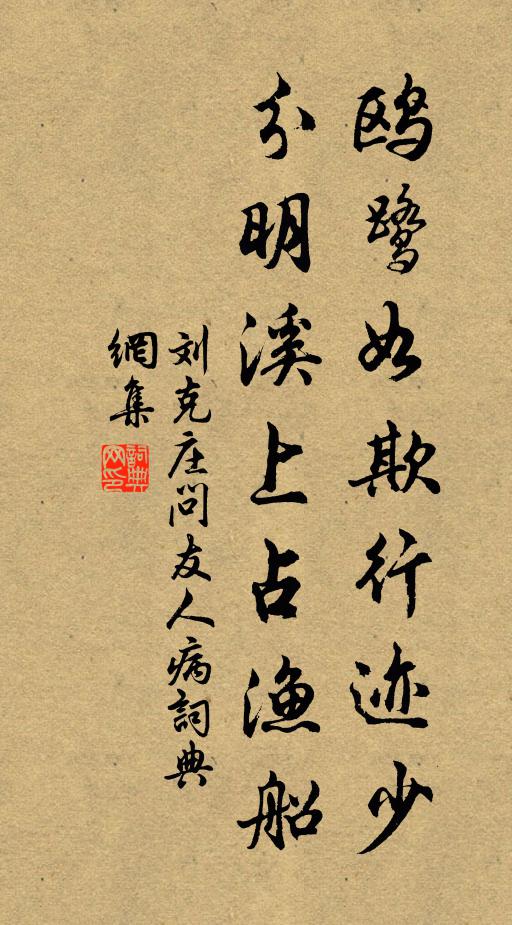 鸥鹭如欺行迹少
分明溪上占渔船
刘克庄问友人病词典
網集
詞典网印